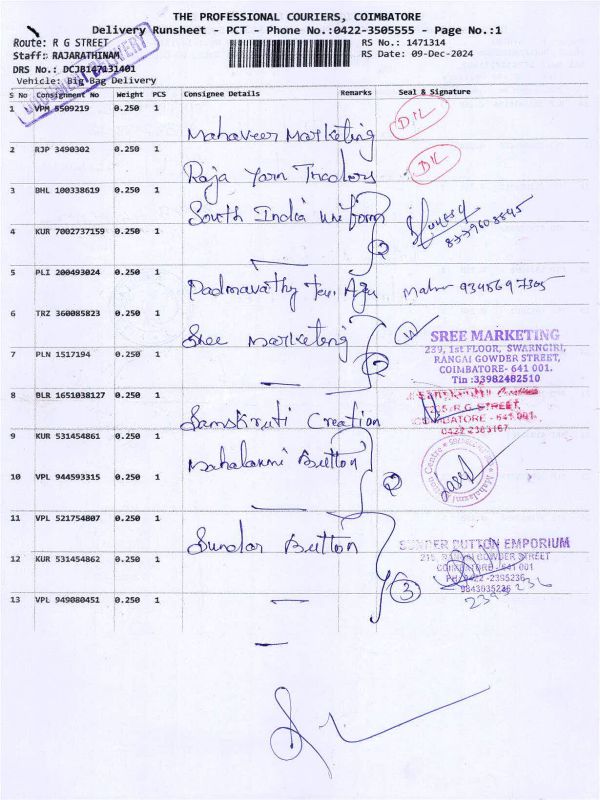 THE PROFESSIONAL COURIERS, COIMBATORE
Delivery Runsheet - PCT - Phone No.:0422-3505555 - Page No.:1
Route: R G STREET
RS No.: 1471314
Staff: RAJARATHINAM
RS Date: 09-Dec-2024
DRS No.: DCJB147131401
Vehicle: Big Bag Delivery
S No Consignment No Weight PCS Consignee Details Remarks Seal & Signature
1 VPM 5509219 0.250 1
Mahaveer Marketing D.L
2 RJP 3490302 0.250 1
Raja Yarn Tradors D.L
3 BHL 100338619 0.250 1
South India uniform
4 KUR 7002737159 0.250 1
2
5 PLI 200493024 0.250 1
Padmavathy Tex. 9345697305
6 TRZ 360085823 0.250 1
Sree Marketing
SREE MARKETING
239, 1st FLOOR, SWARNGIRI,
RANGAI GOWDER STREET,
COIMBATORE- 641 001.
Tin :33982482510
7 PLN 1517194 0.250 1
2
8 BLR 1651038127 0.250 1
Samskruti Creation
R.G STREET,
COIMBATORE - 641 001.
0422 2383167
9 KUR 531454861 0.250 1
Mahalaxmi Button
10 VPL 944593315 0.250 1
2
11 VPL 521754807 0.250 1
Sundar Button
SUNDER BUTTON EMPORIUM
215, RANGAI GOWDER STREET
COIMBATORE - 641 001
PH: 0422 -2395236
9843035236
2395236
12 KUR 531454862 0.250 1
3
13 VPL 949080451 0.250 1